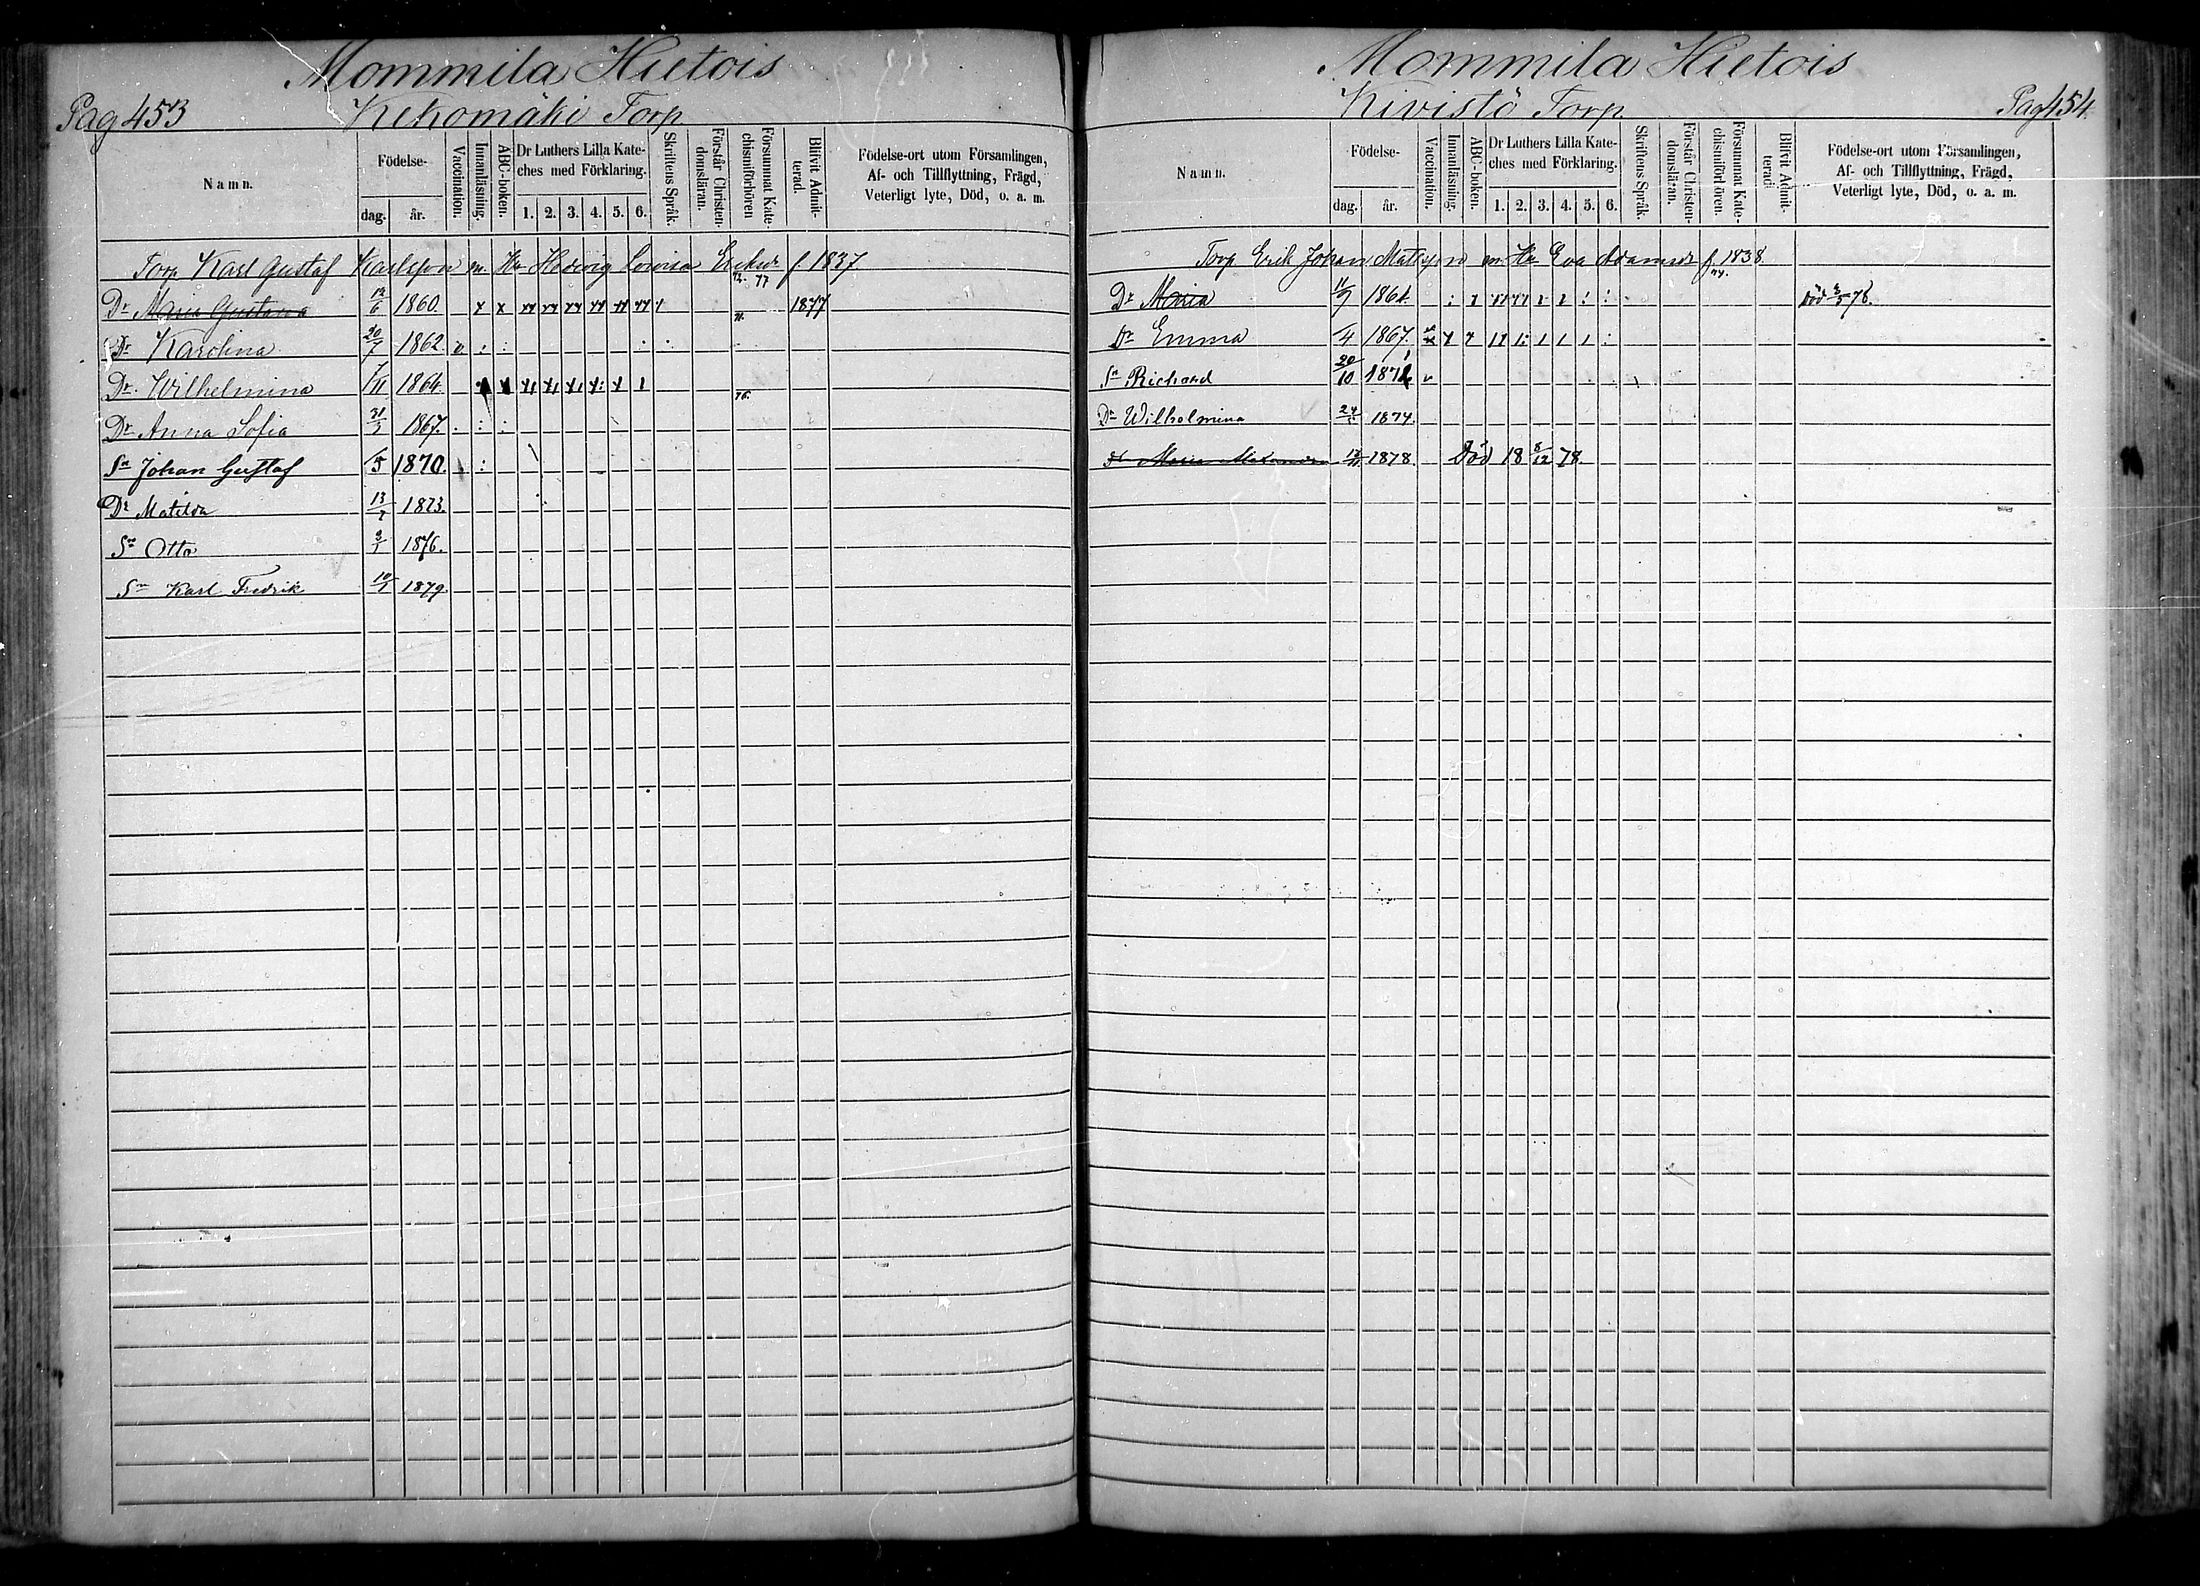 Mommila Hietois
Pag 453
Kekomäki Torp
Namn.
Födelse-
dag.
år.
Vaccination.
Innanläsning.
ABC-boken.
Dr Luthers Lilla Kate-
ches med Förklaring.
1. 2. 3. 4. 5. 6.
Skriftens Språk.
Förstår Christen-
domsläran.
Försummat Kate-
chismiförhören
Blifvit Admit-
terad.
Födelse-ort utom Församlingen,
Af- och Tillflyttning, Frägd,
Veterligt lyte, Död, o. a. m.
Torp Karl Gustaf Karlsson m. Hu Hedwig Lovisa f 1837.
77
Dr Maria Gustava 12/6 1860. 1877
Dr Karolina 20/7 1862 v
Dr Wilhelmina 7/11 1864. 76.
Dr Anna Sofia 1867.
Sn Johan Gustaf 1870
Dr Matilda 13/2 1873.
Sn Otto 1876.
Sn Karl Fredrik 10/1 1879.
Mommila Hietois
Pag 454
Kivistö Torp
Namn.
Födelse-
dag.
år.
Vaccination.
Innanläsning.
ABC-boken.
Dr Luthers Lilla Kate-
ches med Förklaring.
1. 2. 3. 4. 5. 6.
Skriftens Språk.
Förstår Christen-
domsläran.
Försummat Kate-
chismiförhören.
Blifvit Admit-
terad.
Födelse-ort utom Församlingen,
Af- och Tillflyttning, Frägd,
Veterligt lyte, Död, o. a. m.
Torp Erik Johan Mattsson m. Hu Eva Adamsdr f. 1838.
Dr Maria 1864. Död 78.
Dr Emma 1867.
Sn Richard 20/10 1871 v
Dr Wilhelmina 1874.
Dr Maria Alexandra 1878 Död 18 8/12 78.